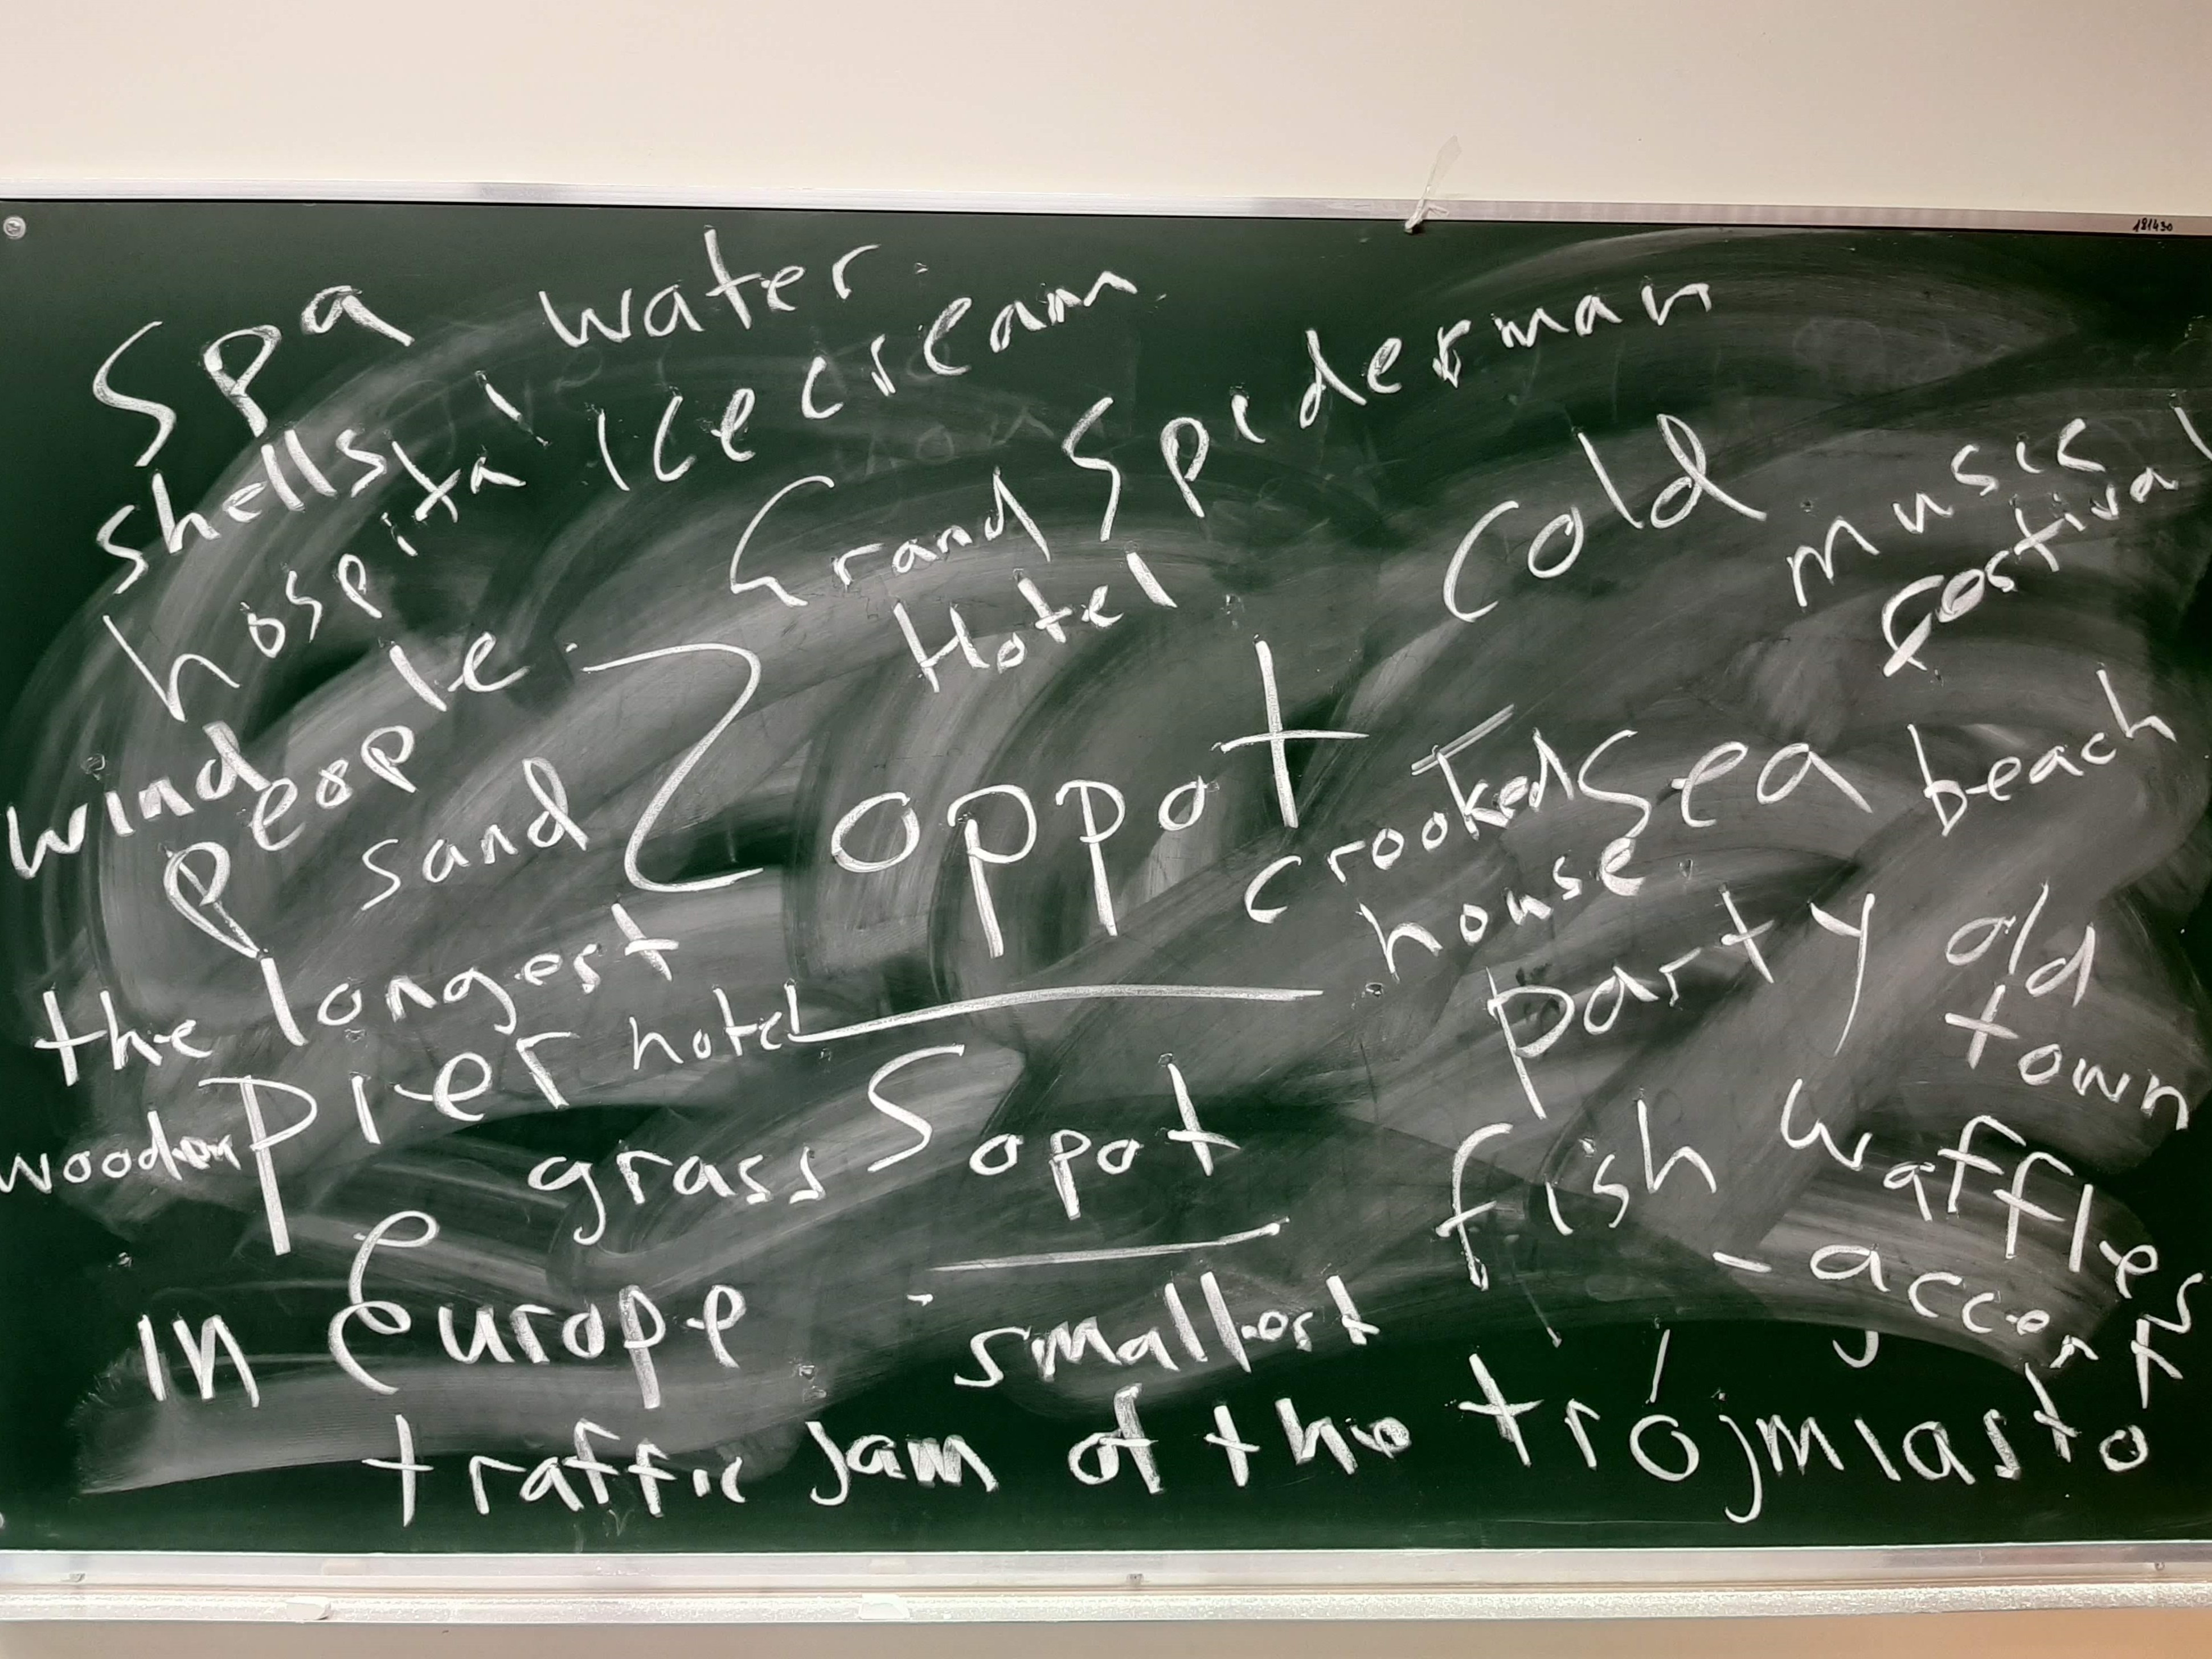 181430
spa water
shells ice cream
hospital
Grand Spiderman
Hotel
cold
music
festival
wind
people
sand
Zoppot
crooked
house
sea beach
the longest
wooden pier
in Europe
hotel
party
old
town
grass
Sopot
fish
waffles
- accent
smallest
traffic jam of the trójmiasto